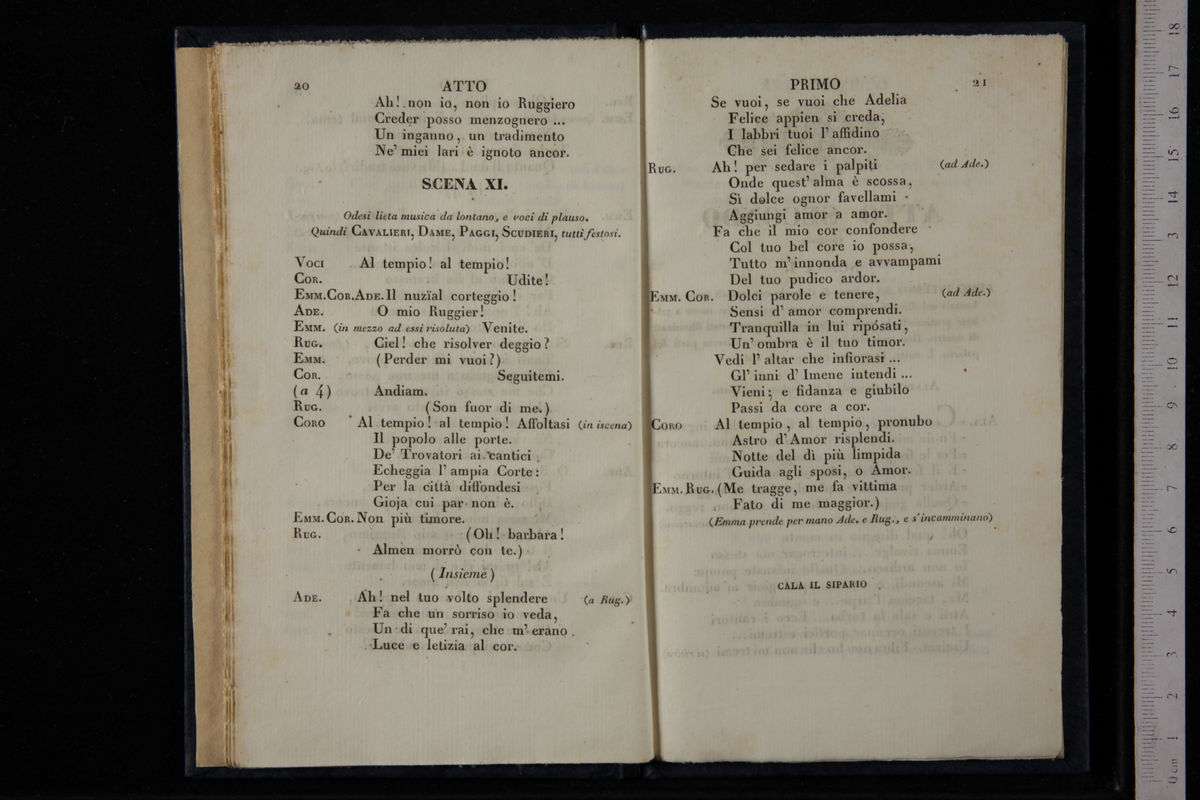 20 ATTO
Ah! non io, non io Ruggiero
Creder posso menzognero ...
Un inganno, un tradimento
Ne' miei lari è ignoto ancor.
SCENA XI.
Odesi lieta musica da lontano, e voci di plauso.
Quindi CAVALIERI, DAME, PAGGI, SCUDIERI, tutti festosi.
VOCI Al tempio! al tempio!
COR. Udite!
EMM. COR. ADE. Il nuzïal corteggio!
ADE. O mio Ruggier!
EMM. (in mezzo ad essi risoluta) Venite.
RUG. Ciel! che risolver deggio?
EMM. (Perder mi vuoi?)
COR. Seguitemi.
(a 4) Andiam.
RUG. (Son fuor di me.)
CORO Al tempio! al tempio! Affoltasi (in iscena)
Il popolo alle porte.
De' Trovatori ai cantici
Echeggia l'ampia Corte:
Per la città diffondesi
Gioja cui par non è.
EMM. COR. Non più timore.
RUG. (Oh! barbara!
Almen morrò con te.)
(Insieme)
ADE. Ah! nel tuo volto splendere (a Rug.)
Fa che un sorriso io veda,
Un di que' rai, che m'erano
Luce e letizia al cor.
PRIMO 21
Se vuoi, se vuoi che Adelia
Felice appien si creda,
I labbri tuoi l'affidino
Che sei felice ancor.
RUG. Ah! per sedare i palpiti (ad Ade.)
Onde quest'alma è scossa,
Sì dolce ognor favellami
Aggiungi amor a amor.
Fa che il mio cor confondere
Col tuo bel core io possa,
Tutto m'innonda e avvampami
Del tuo pudico ardor.
EMM. COR. Dolci parole e tenere, (ad Ade.)
Sensi d'amor comprendi.
Tranquilla in lui ripósati,
Un'ombra è il tuo timor.
Vedi l'altar che infiorasi ...
Gl'inni d'Imene intendi ...
Vieni; e fidanza e giubilo
Passi da core a cor.
CORO Al tempio, al tempio, pronubo
Astro d'Amor risplendi.
Notte del dì più limpida
Guida agli sposi, o Amor.
EMM. RUG. (Me tragge, me fa vittima
Fato di me maggior.)
(Emma prende per mano Ade. e Rug., e s'incamminano)
CALA IL SIPARIO
0 cm 1 2 3 4 5 6 7 8 9 10 11 12 13 14 15 16 17 18